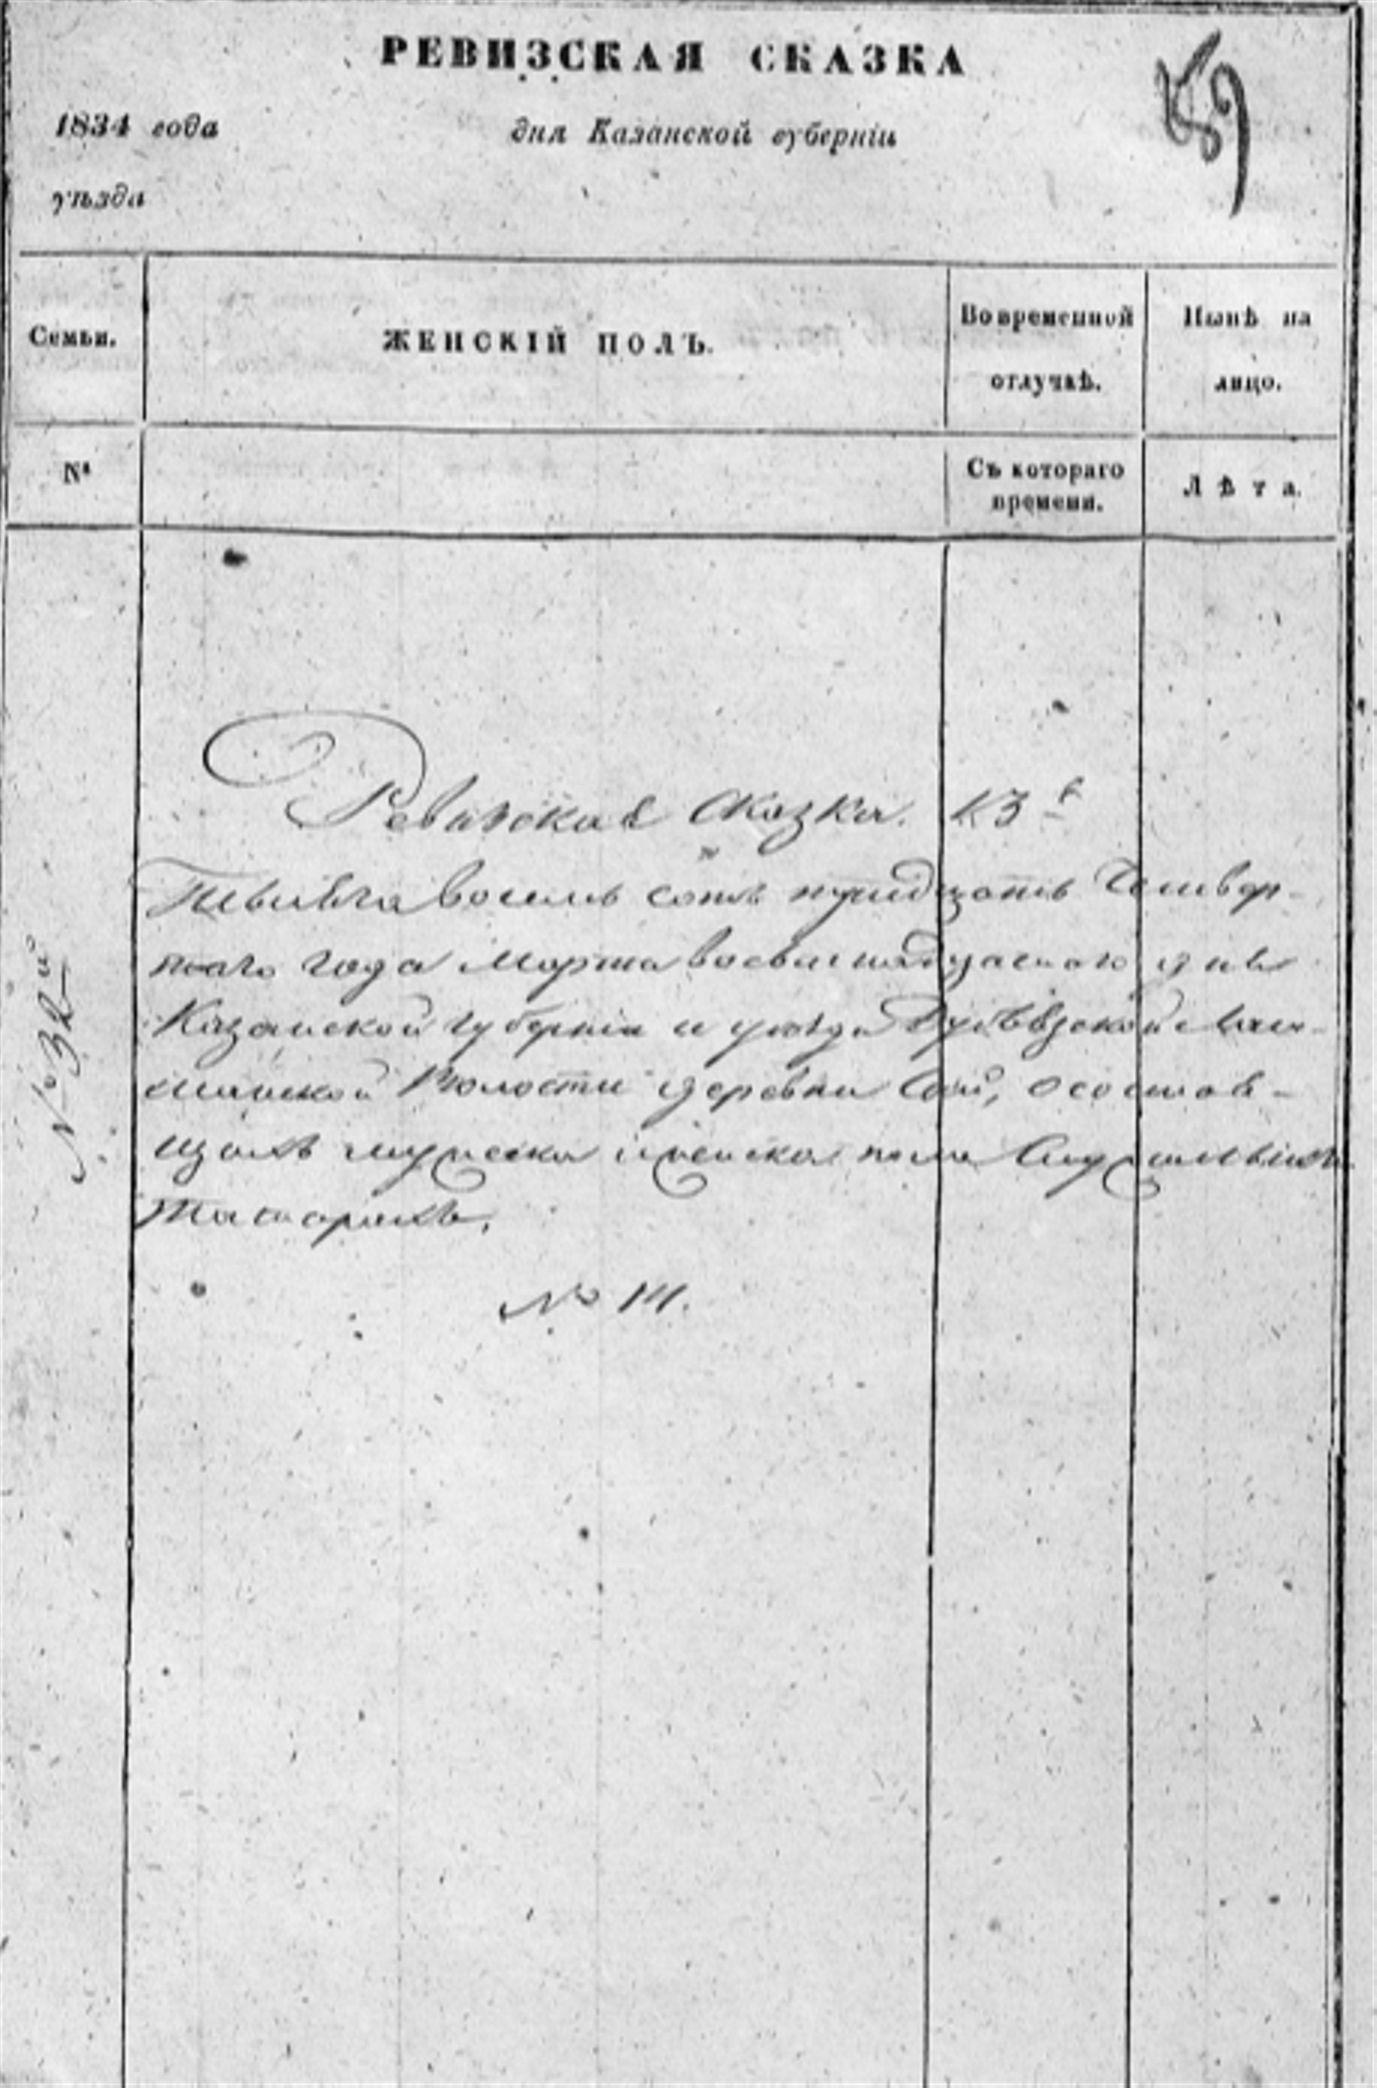 РЕВИЗСКАЯ СКАЗКА
1834 года дня Казанской губерніи
уѣзда
Семьи.
ЖЕНСКІЙ ПОЛЪ.
Во временной отлучкѣ.
Нынѣ на лицо.
№
Съ котораго времени.
Лѣта.
Ревизская Сказка.
Тысяча восемь сотъ тридцать Четвер-
таго года Марта восемнадцатаго дня
Казанской губерніи и уѣзда
Волости деревни о состоя-
щихъ мужеска и женска пола Служилыхъ
Татарахъ.
№ 32й